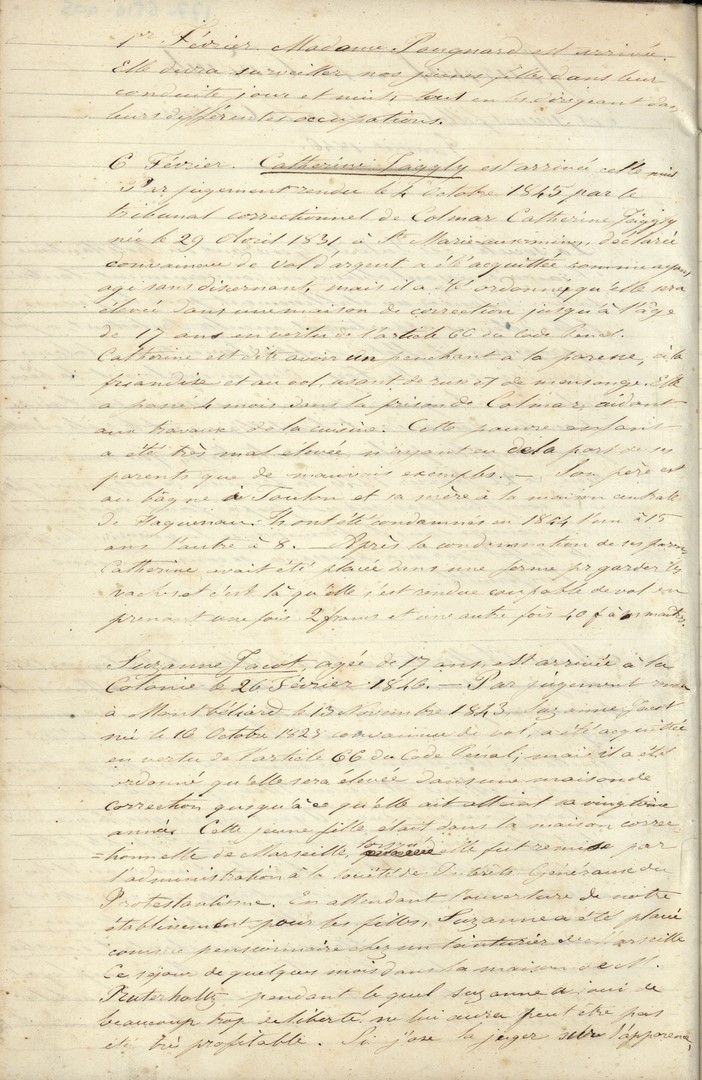 1er Février. Madame Pougnard est arrivée.
Elle devra surveiller nos jeunes filles dans leur
conduite jour et nuit, tout en les dirigeant dans
leurs différentes occupations.
6 Février. Catherine Jäggly est arrivée cette nuit
Par jugement rendu le 4 Octobre 1845 par le
tribunal correctionnel de Colmar Catherine Jäggly
née le 29 Avril 1831 à Ste Marie-aux-mines, déclarée
convaincue de vol d'argent a été acquittée comme ayant
agi sans discernant, mais il a été ordonné qu'elle sera
élevée dans une maison de correction jusqu'à l'âge
de 17 ans en vertu de l'article 66 du Code Pénal.
Catherine est dite avoir un penchant à la paresse, à la
friandise et au vol, usant de ruse et de mensonge. Elle
a passé 4 mois dans la prison de Colmar, aidant
aux travaux de la cuisine. Cette pauvre enfant
a été très mal élevée, n'ayant eu de la part de ses
parents que de mauvais exemples. — Son père est
au bagne de Toulon et sa mère à la maison centrale
de Haguenau. Ils ont été condamnés en 1844 l'un à 15
ans l'autre à 8. — Après la condamnation de ses parens
Catherine avait été placée dans une ferme pr garder les
vaches et c'est là qu'elle s'est rendue coupable de vol en
prenant une fois 2 francs et une autre fois 40 f à ses maîtres.
Suzanne Jacot, agée de 17 ans, est arrivée à la
Colonie le 26 Février 1846. — Par jugement rendu
à Montbéliard le 13 Novembre 1843 Suzanne Jacot
née le 16 Octobre 1828 convaincue de vol, a été acquittée
en vertu de l'article 66 du Code Pénal; mais il a été
ordonné qu'elle sera élevée dans une maison de
correction jusqu'à ce qu'elle ait atteint sa vingtième
année. Cette jeune fille était dans la maison correc
=tionnelle de Marseille, lorsqu'elle fut remise par
l'administration à la Société des Intérêts Généraux du
Protestantisme. En attendant l'ouverture de notre
établissement pour les filles, Suzanne a été placée
comme pensionnaire chez un teinturier de Marseille
Ce séjour de quelques mois dans la maison de M.
pendant lequel Suzanne a joui de
beaucoup trop de liberté ne lui aura peut être pas
été très profitable. Si j'ose la juger sur l'apparence,